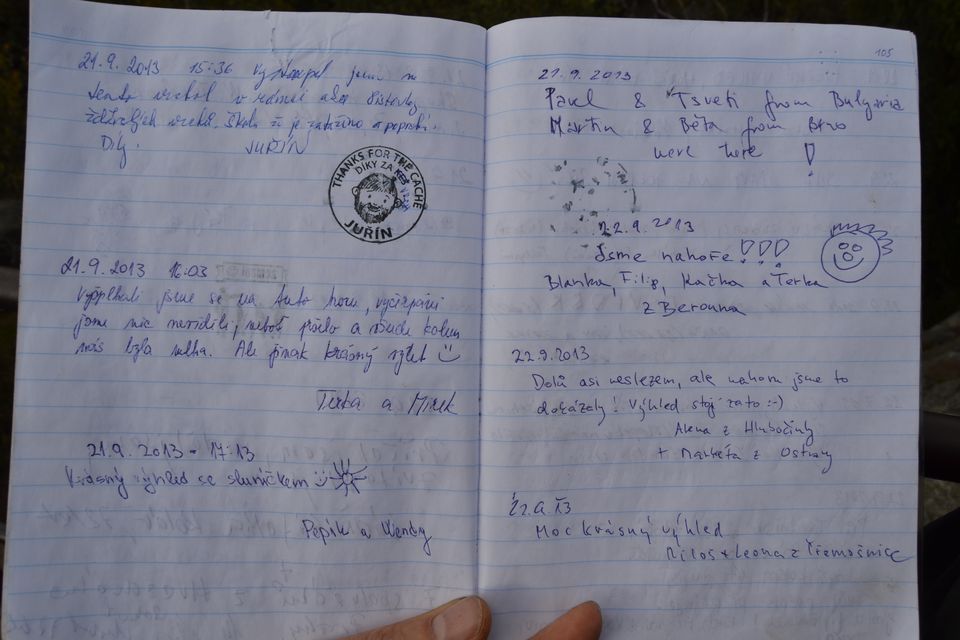 21.9.2013 15:36 Vystoupal jsem na
tento vrchol v rámci akce
Žďárských vrchů. Škoda že je zataženo a poprchá.
Díky. JUŘÍN
THANKS FOR THE CACHE
DÍKY ZA
JUŘÍN
21.9.2013 16:03
Vyšplhali jsme se na tuto horu, vyčerpáni
jsme nic neviděli, neboť pršelo a všude kolem
nás byla mlha. Ale jinak krásný výlet
Terka a Mirek
21.9.2013 - 17:13
Krásný výhled se sluníčkem
Pepík a Wendy
105
21.9.2013
Pavel & Tsveti from Bulgaria
Martin & Běta from Brno
were here !
22.9.2013
Jsme nahoře!!!
Blanka, Filip, Kačka a Terka
z Berouna
22.9.2013
Dolů asi neslezem, ale nahoru jsme to
dokázaly! Výhled stojí zato :-)
Alena z Hlubočinky
+ Markéta z Ostravy
22.9.13
Moc krásný výhled
Miloš + Leona z Třemošnice